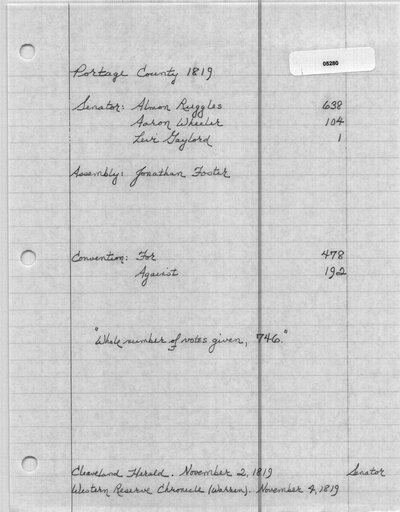 05280
Portage County 1819
Senator: Almon Ruggles 638
Aaron Wheeler 104
Levi Gaylord 1
Assembly: Jonathan Foster
Convention: For 478
Against 192
"Whole number of votes given, 746."
Cleaveland Herald. November 2, 1819 Senator
Western Reserve Chronicle (Warren). November 4, 1819